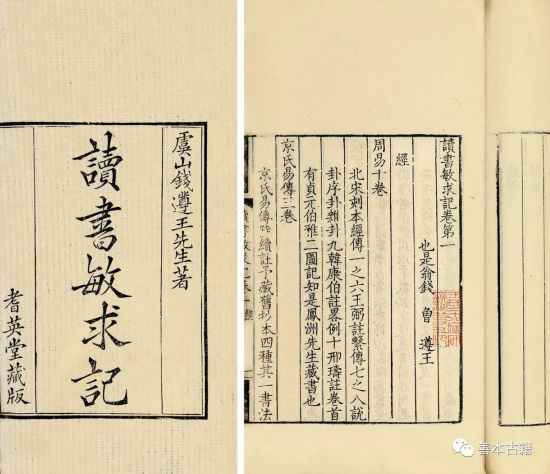 虞山錢遵王先生著
讀書敏求記
耆英堂藏版
讀書敏求記卷第一
也是翁錢 曾 遵王
經
周易十卷
北宋刻本經傳一之六王弼註繫傳七之八說
卦序卦雜卦九韓康伯註畧例十邢璹註卷首
有貞元伯雅二圖記知是鳳洲先生藏書也
京氏易傳三卷
京氏易傳陸續註予藏舊抄本四種其一書法
善本古籍